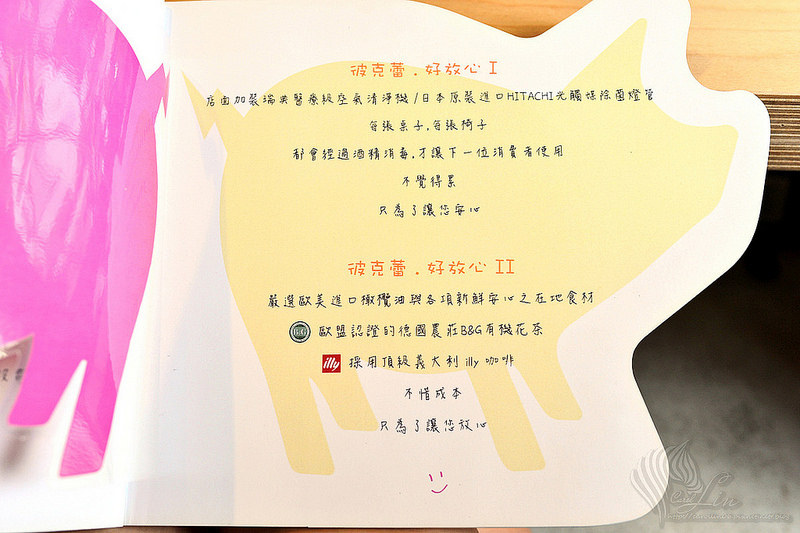 彼克蕾.好放心 I
店面加裝瑞典醫療級空氣清淨機/日本原裝進口HITACHI光觸媒除菌燈管
每張桌子,每張椅子
都會經過酒精消毒,才讓下一位消費者使用
不覺得累
只為了讓您安心
彼克蕾.好放心 II
嚴選歐美進口橄欖油與各項新鮮安心之在地食材
B&G
歐盟認證的德國農莊B&G有機花茶
illy
採用頂級義大利 illy 咖啡
不惜成本
只為了讓您放心
Lin